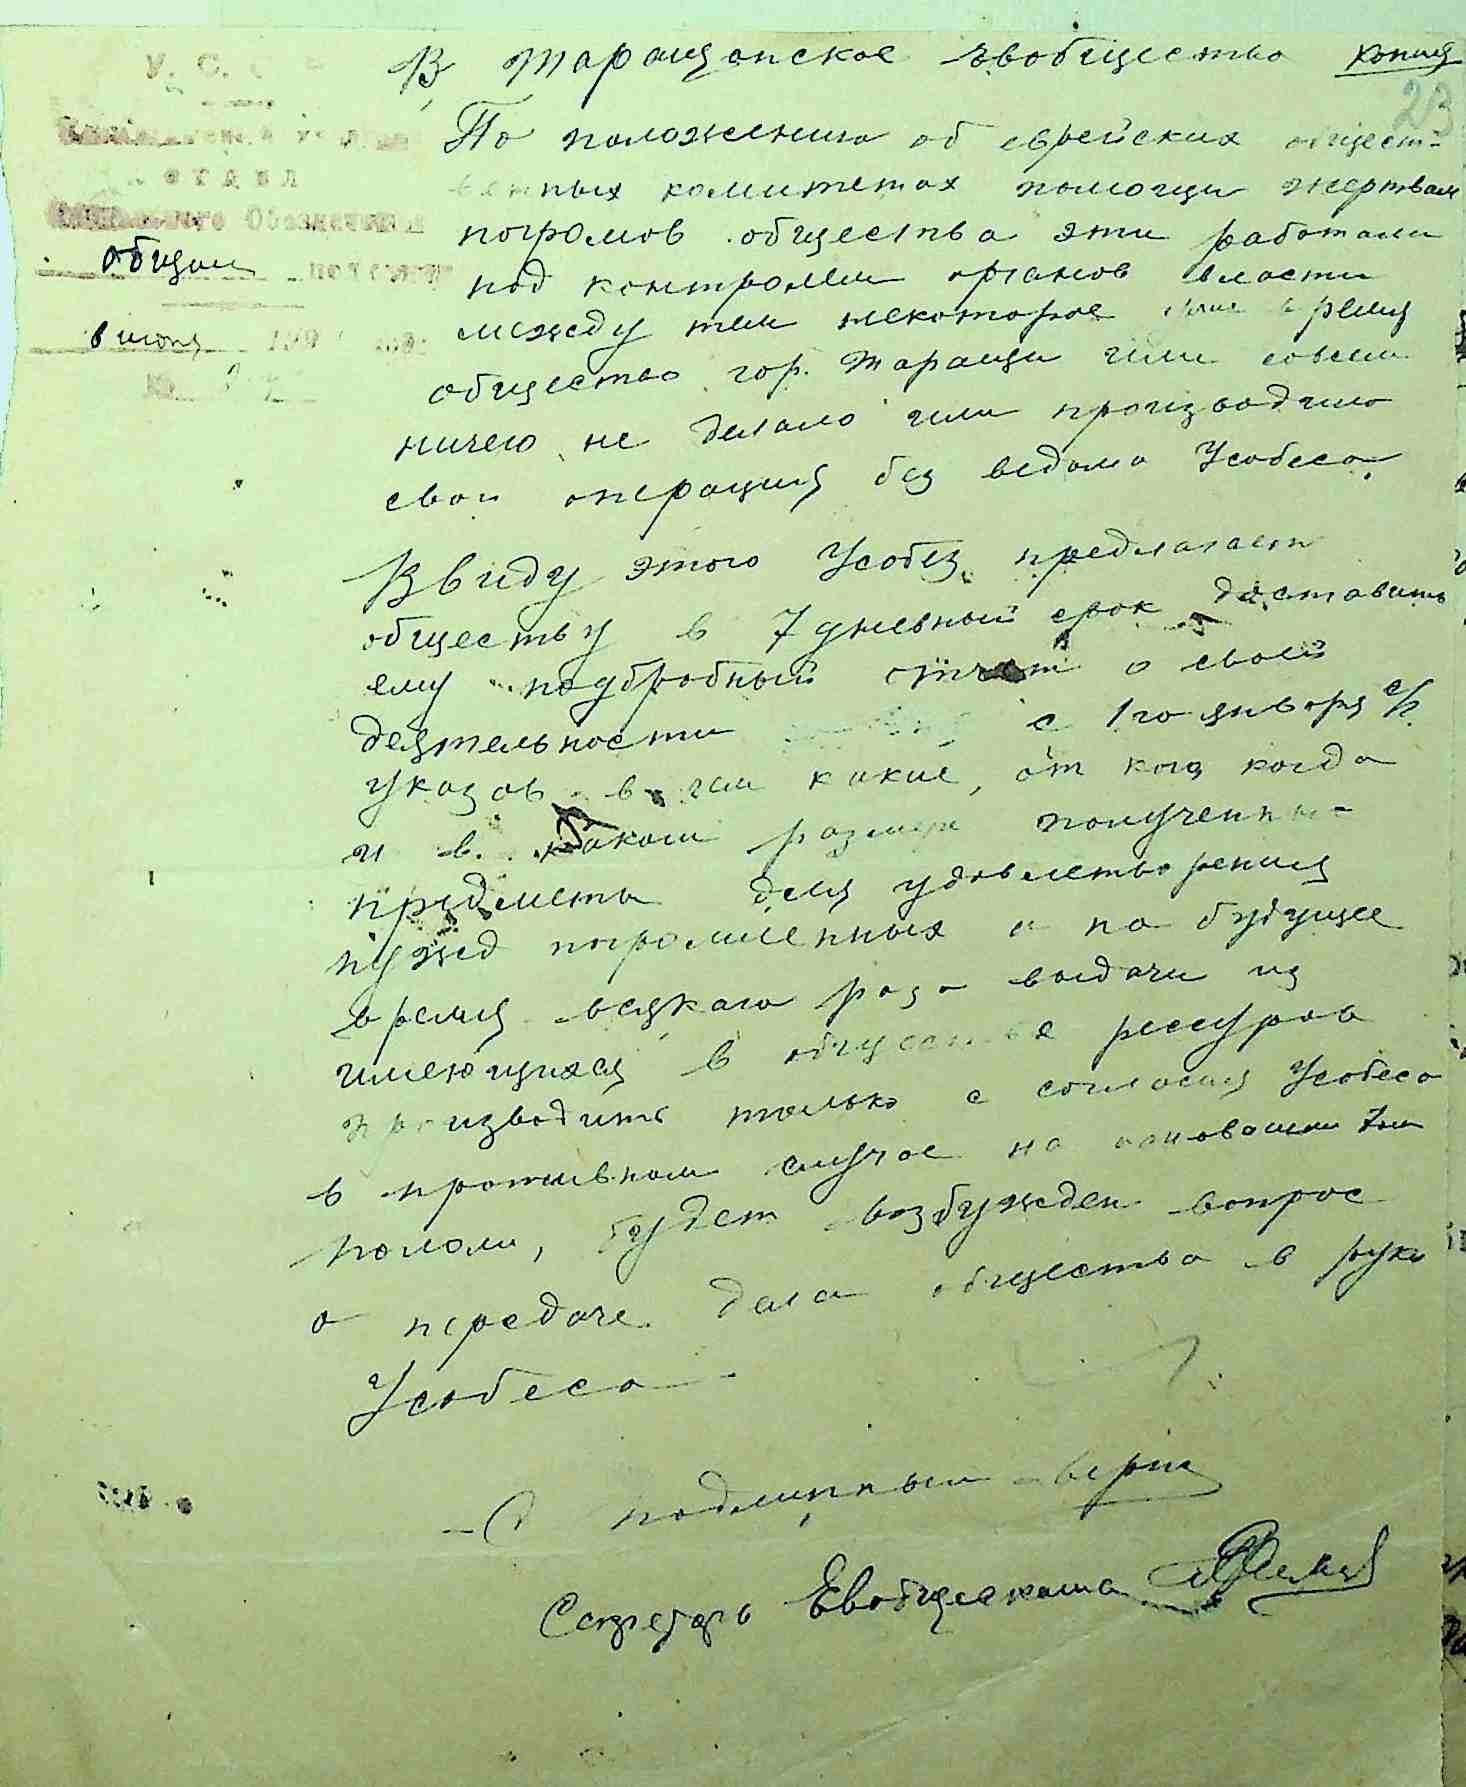 В Таращанское Евобщество копия
23
У. С.
ОТДЕЛ
Общий
6 июня
По положению об еврейских общест-
венных комитетах помощи жертвам
погромов общества эти работали
под контролем органов власти
между тем некоторое время
общество гор. Таращи или совсем
ничего не делало или производило
свои операции без ведома Усобеса.
Ввиду этого Усобез предлагает
обществу в 7 дневный срок доставить
ему подробный отчет о своей
деятельности с 1го января с/г.
указав в нем какие, от кого когда
и в каком размере полученные
предметы для удовлетворения
нужд погромленных и на будущее
время всякаго рода выдачи из
имеющихся в обществе ресурсов
производить только с согласия Усобеса
в противном случае на основании
полож, будет возбужден вопрос
о передаче дела общества в руки
Усобеса
С подлинным верно
Секретарь Евобщескома